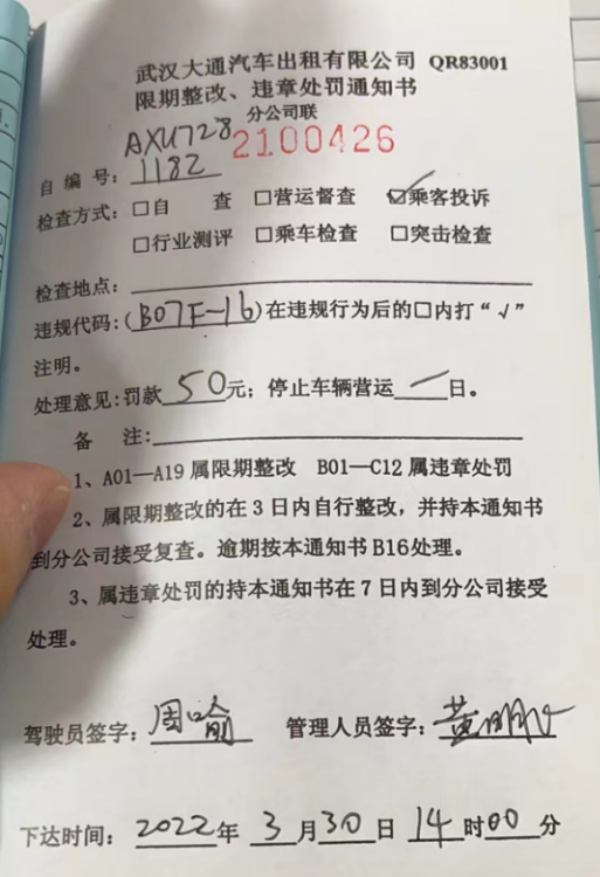 武汉大通汽车出租有限公司 QR83001
限期整改、违章处罚通知书
分公司联
AXU728 2100426
自编号：1182
检查方式：□自 查 □营运督查 ☑乘客投诉
□行业测评 □乘车检查 □突击检查
检查地点：
违规代码：(B07F-16)在违规行为后的□内打“√”
注明。
处理意见：罚款50元；停止车辆营运/日。
备 注：
1、A01—A19属限期整改 B01—C12属违章处罚
2、属限期整改的在3日内自行整改，并持本通知书
到分公司接受复查。逾期按本通知书B16处理。
3、属违章处罚的持本通知书在7日内到分公司接受
处理。
驾驶员签字：周喻 管理人员签字：黄
下达时间：2022年3月30日14时00分